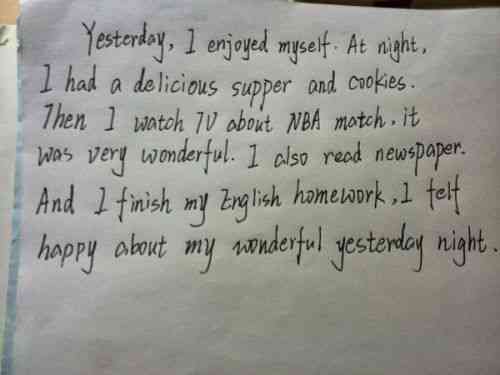 Yesterday, I enjoyed myself. At night,
I had a delicious supper and cookies.
Then I watch TV about NBA match, it
was very wonderful. I also read newspaper.
And I finish my English homework, I felt
happy about my wonderful yesterday night.